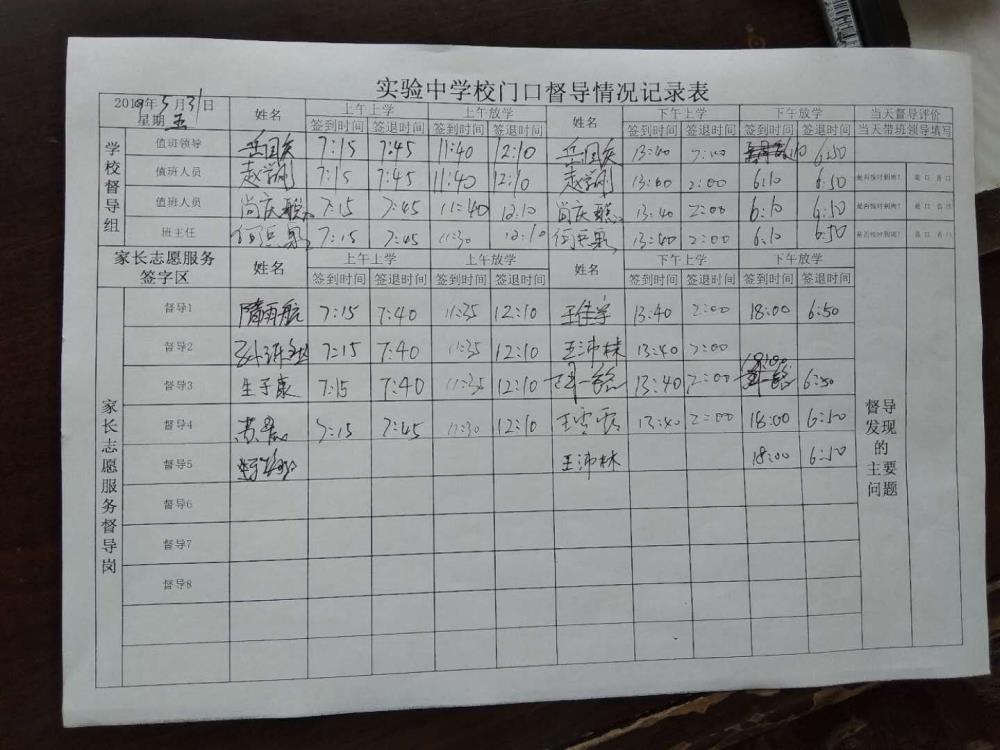 实验中学校门口督导情况记录表
2019年5月31日 星期五 姓名 上午上学 上午放学 姓名 下午上学 下午放学 当天督导评价
签到时间 签退时间 签到时间 签退时间 签到时间 签退时间 签到时间 签退时间 当天带班领导填写
学校督导组
值班领导 7:15 7:45 11:40 12:10 13:40 2:00 6:50
值班人员 赵学刚 7:15 7:45 11:40 12:10 赵学刚 13:40 2:00 6:10 6:50 是否按时到岗? 是口 否口
值班人员 尚庆聪 7:15 7:45 11:40 12:10 尚庆聪 13:40 2:00 6:10 6:50 是否按时到岗? 是口 否口
班主任 7:15 7:45 11:30 12:10 13:40 2:00 6:10 6:50 是否按时到岗? 是口 否口
家长志愿服务签字区 姓名 上午上学 上午放学 姓名 下午上学 下午放学
签到时间 签退时间 签到时间 签退时间 签到时间 签退时间 签到时间 签退时间
家长志愿服务督导岗
督导1 隋雨航 7:15 7:40 11:35 12:10 王佳宇 13:40 2:00 18:00 6:50
督导2 7:15 7:40 11:35 12:10 王沛林 13:40 2:00
督导3 生子康 7:15 7:40 11:35 12:10 13:40 2:00 18:00 6:50
督导4 7:15 7:45 11:30 12:10 13:40 2:00 18:00 6:50
督导5 王沛林 18:00 6:50
督导6
督导7
督导8
督导发现的主要问题